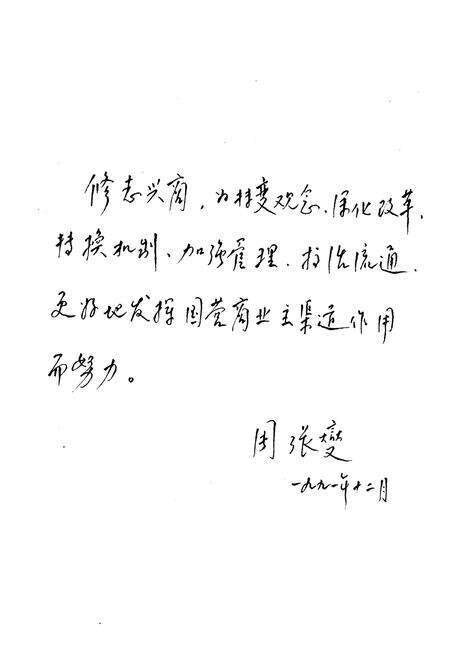 修志兴商，为转变观念、深化改革、
转换机制、加强管理、搞活流通、
更好地发挥国营商业主渠道作用
而努力。
周张燮
一九九一年十二月